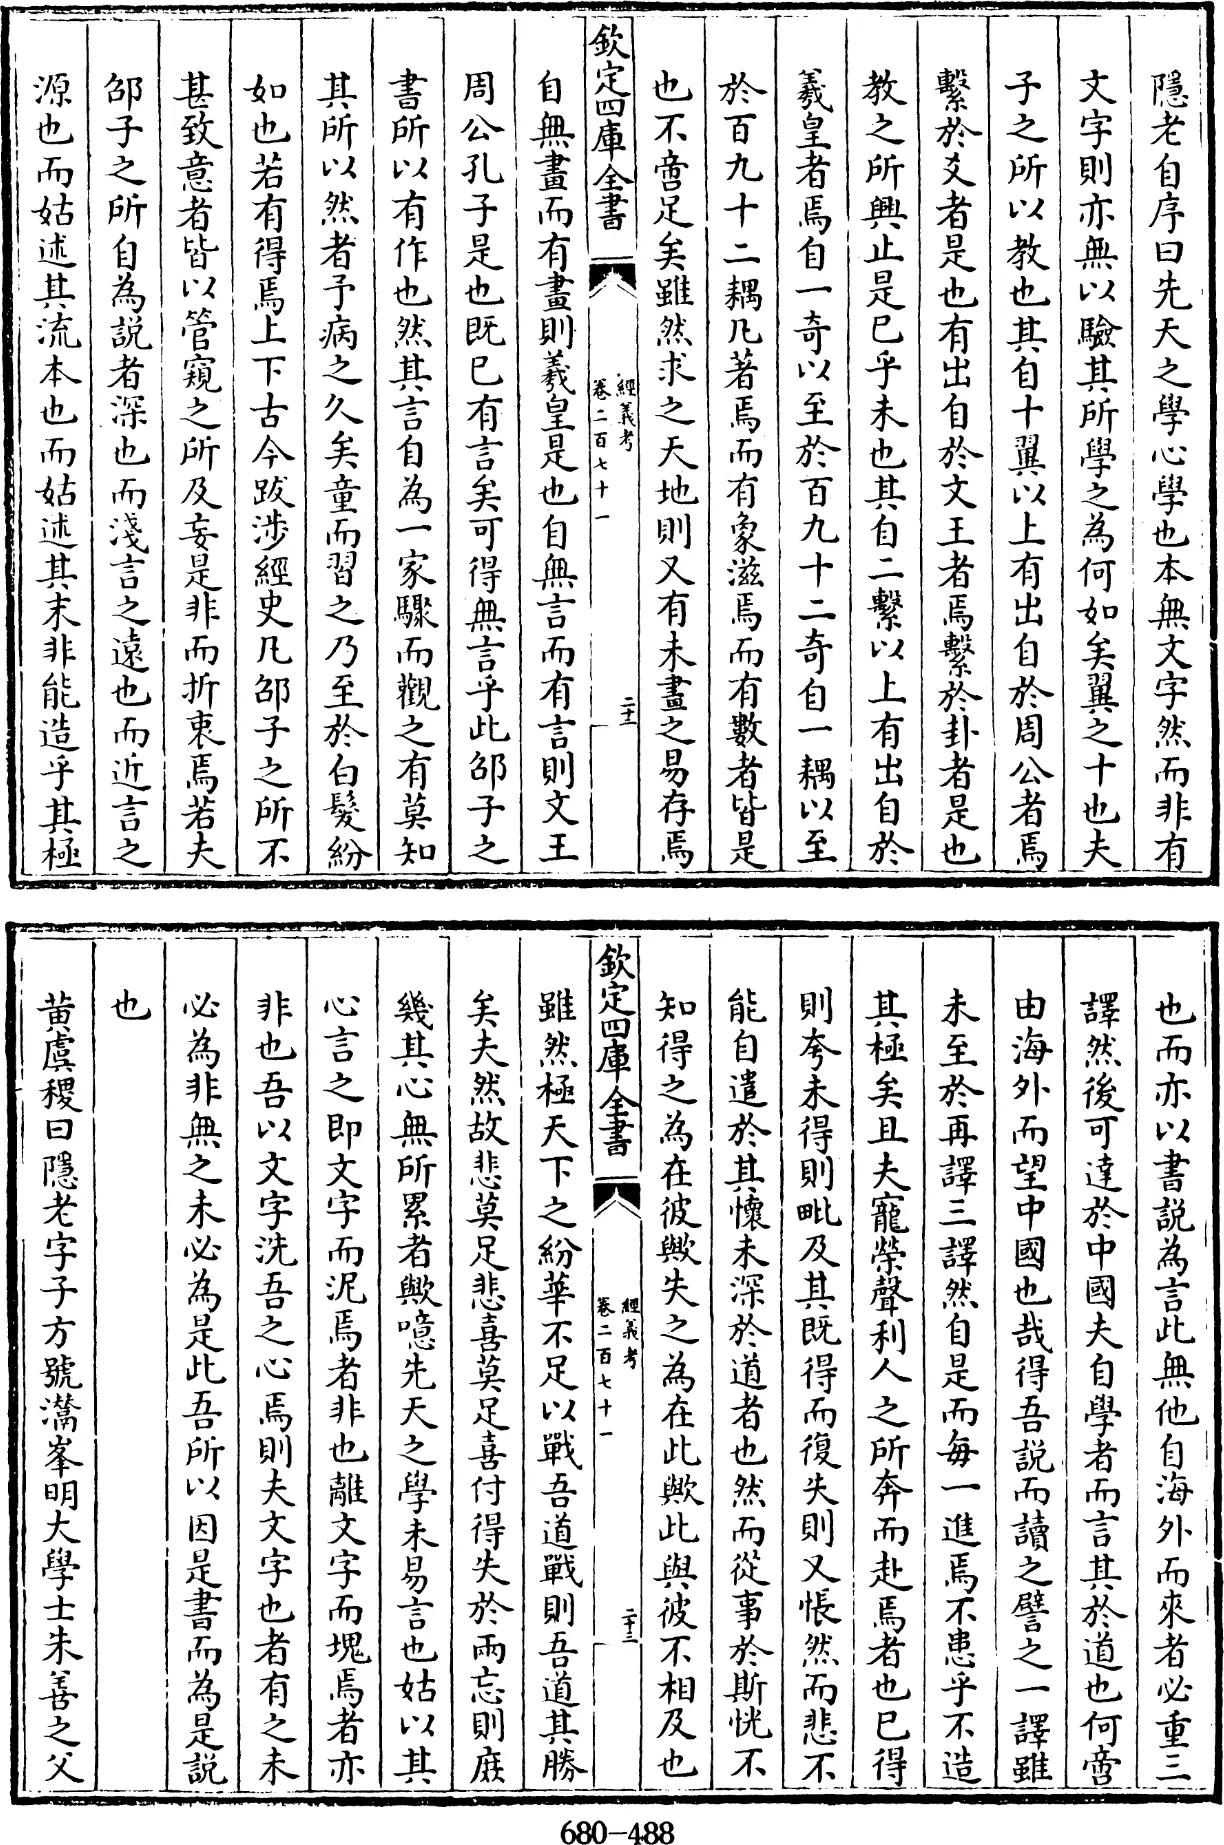 隱老自序曰先天之學心學也本無文字然而非有
文字則亦無以驗其所學之為何如矣翼之十也夫
子之所以教也其自十翼以上有出自於周公者焉
繫於爻者是也有出自於文王者焉繫於卦者是也
教之所興止是已乎未也其自二繫以上有出自於
羲皇者焉自一奇以至於百九十二奇自一耦以至
於百九十二耦凡著焉而有象滋焉而有數者皆是
也不啻足矣雖然求之天地則又有未畫之易存焉
欽定四庫全書
經義考
卷二百七十一
二十二
自無畫而有畫則羲皇是也自無言而有言則文王
周公孔子是也既已有言矣可得無言乎此邵子之
書所以有作也然其言自為一家驟而觀之有莫知
其所以然者予病之久矣童而習之乃至於白髮紛
如也若有得焉上下古今跋涉經史凡邵子之所不
甚致意者皆以管窺之所及妄是非而折衷焉若夫
邵子之所自為説者深也而淺言之遠也而近言之
源也而姑述其流本也而姑述其末非能造乎其極
也而亦以書説為言此無他自海外而來者必重三
譯然後可達於中國夫自學者而言其於道也何啻
由海外而望中國也哉得吾説而讀之譬之一譯雖
未至於再譯三譯然自是而每一進焉不患乎不造
其極矣且夫寵榮聲利人之所奔而赴焉者也已得
則夸未得則毗及其既得而復失則又悵然而悲不
能自遣於其懷未深於道者也然而從事於斯恍不
知得之為在彼歟失之為在此歟此與彼不相及也
欽定四庫全書
經義考
卷二百七十一
二十三
雖然極天下之紛華不足以戰吾道戰則吾道其勝
矣夫然故悲莫足悲喜莫足喜付得失於兩忘則庶
幾其心無所累者歟噫先天之學未易言也姑以其
心言之即文字而泥焉者非也離文字而塊焉者亦
非也吾以文字洗吾之心焉則夫文字也者有之未
必為非無之未必為是此吾所以因是書而為是説
也
黄虞稷曰隱老字子方號灊峯明大學士朱善之父
680-488